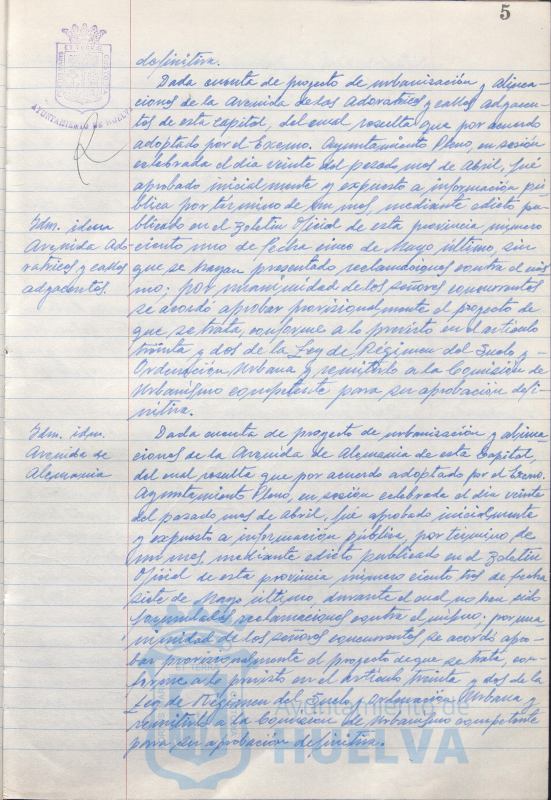 5
AYUNTAMIENTO DE HUELVA
definitiva.
Dada cuenta de proyecto de urbanización y alinea-
ciones de la Avenida de las Adoratrices y calles adyacen-
tes de esta capital, del cual resulta que por acuerdo
adoptado por el Excmo. Ayuntamiento Pleno, en sesión
celebrada el día veinte del pasado mes de Abril, fué
aprobado inicialmente y expuesto a información pú-
blica por término de un mes, mediante edicto pu-
Idm. idem
blicado en el Boletín Oficial de esta provincia número
Avenida Ado-
ciento uno de fecha cinco de Mayo último, sin
ratrices y calles
que se hayan presentado reclamaciones contra el mis-
adyacentes.
mo; por unanimidad de los señores concurrentes
se acordó aprobar provisionalmente el proyecto de
que se trata, conforme a lo previsto en el artículo
treinta y dos de la Ley de Régimen del Suelo y
Ordenación Urbana y remitirlo a la Comisión de
Urbanismo competente para su aprobación defi-
nitiva.
Idm. idm.
Dada cuenta de proyecto de urbanización y alinea-
Avenida de
ciones de la Avenida de Alemania de esta Capital,
Alemania
del cual resulta que por acuerdo adoptado por el Excmo.
Ayuntamiento Pleno, en sesión celebrada el día veinte
del pasado mes de Abril, fué aprobado inicialmente
y expuesto a información pública, por término de
un mes, mediante edicto publicado en el Boletín
Oficial de esta provincia número ciento tres de fecha
siete de Mayo último, durante el cual no han sido
formuladas reclamaciones contra el mismo; por una-
nimidad de los señores concurrentes se acordó apro-
bar provisionalmente el proyecto de que se trata, con-
forme a lo previsto en el artículo treinta y dos de la
Ley de Régimen del Suelo y Ordenación Urbana y
remitirlo a la Comisión de Urbanismo competente
para su aprobación definitiva.
Ayuntamiento de
HUELVA